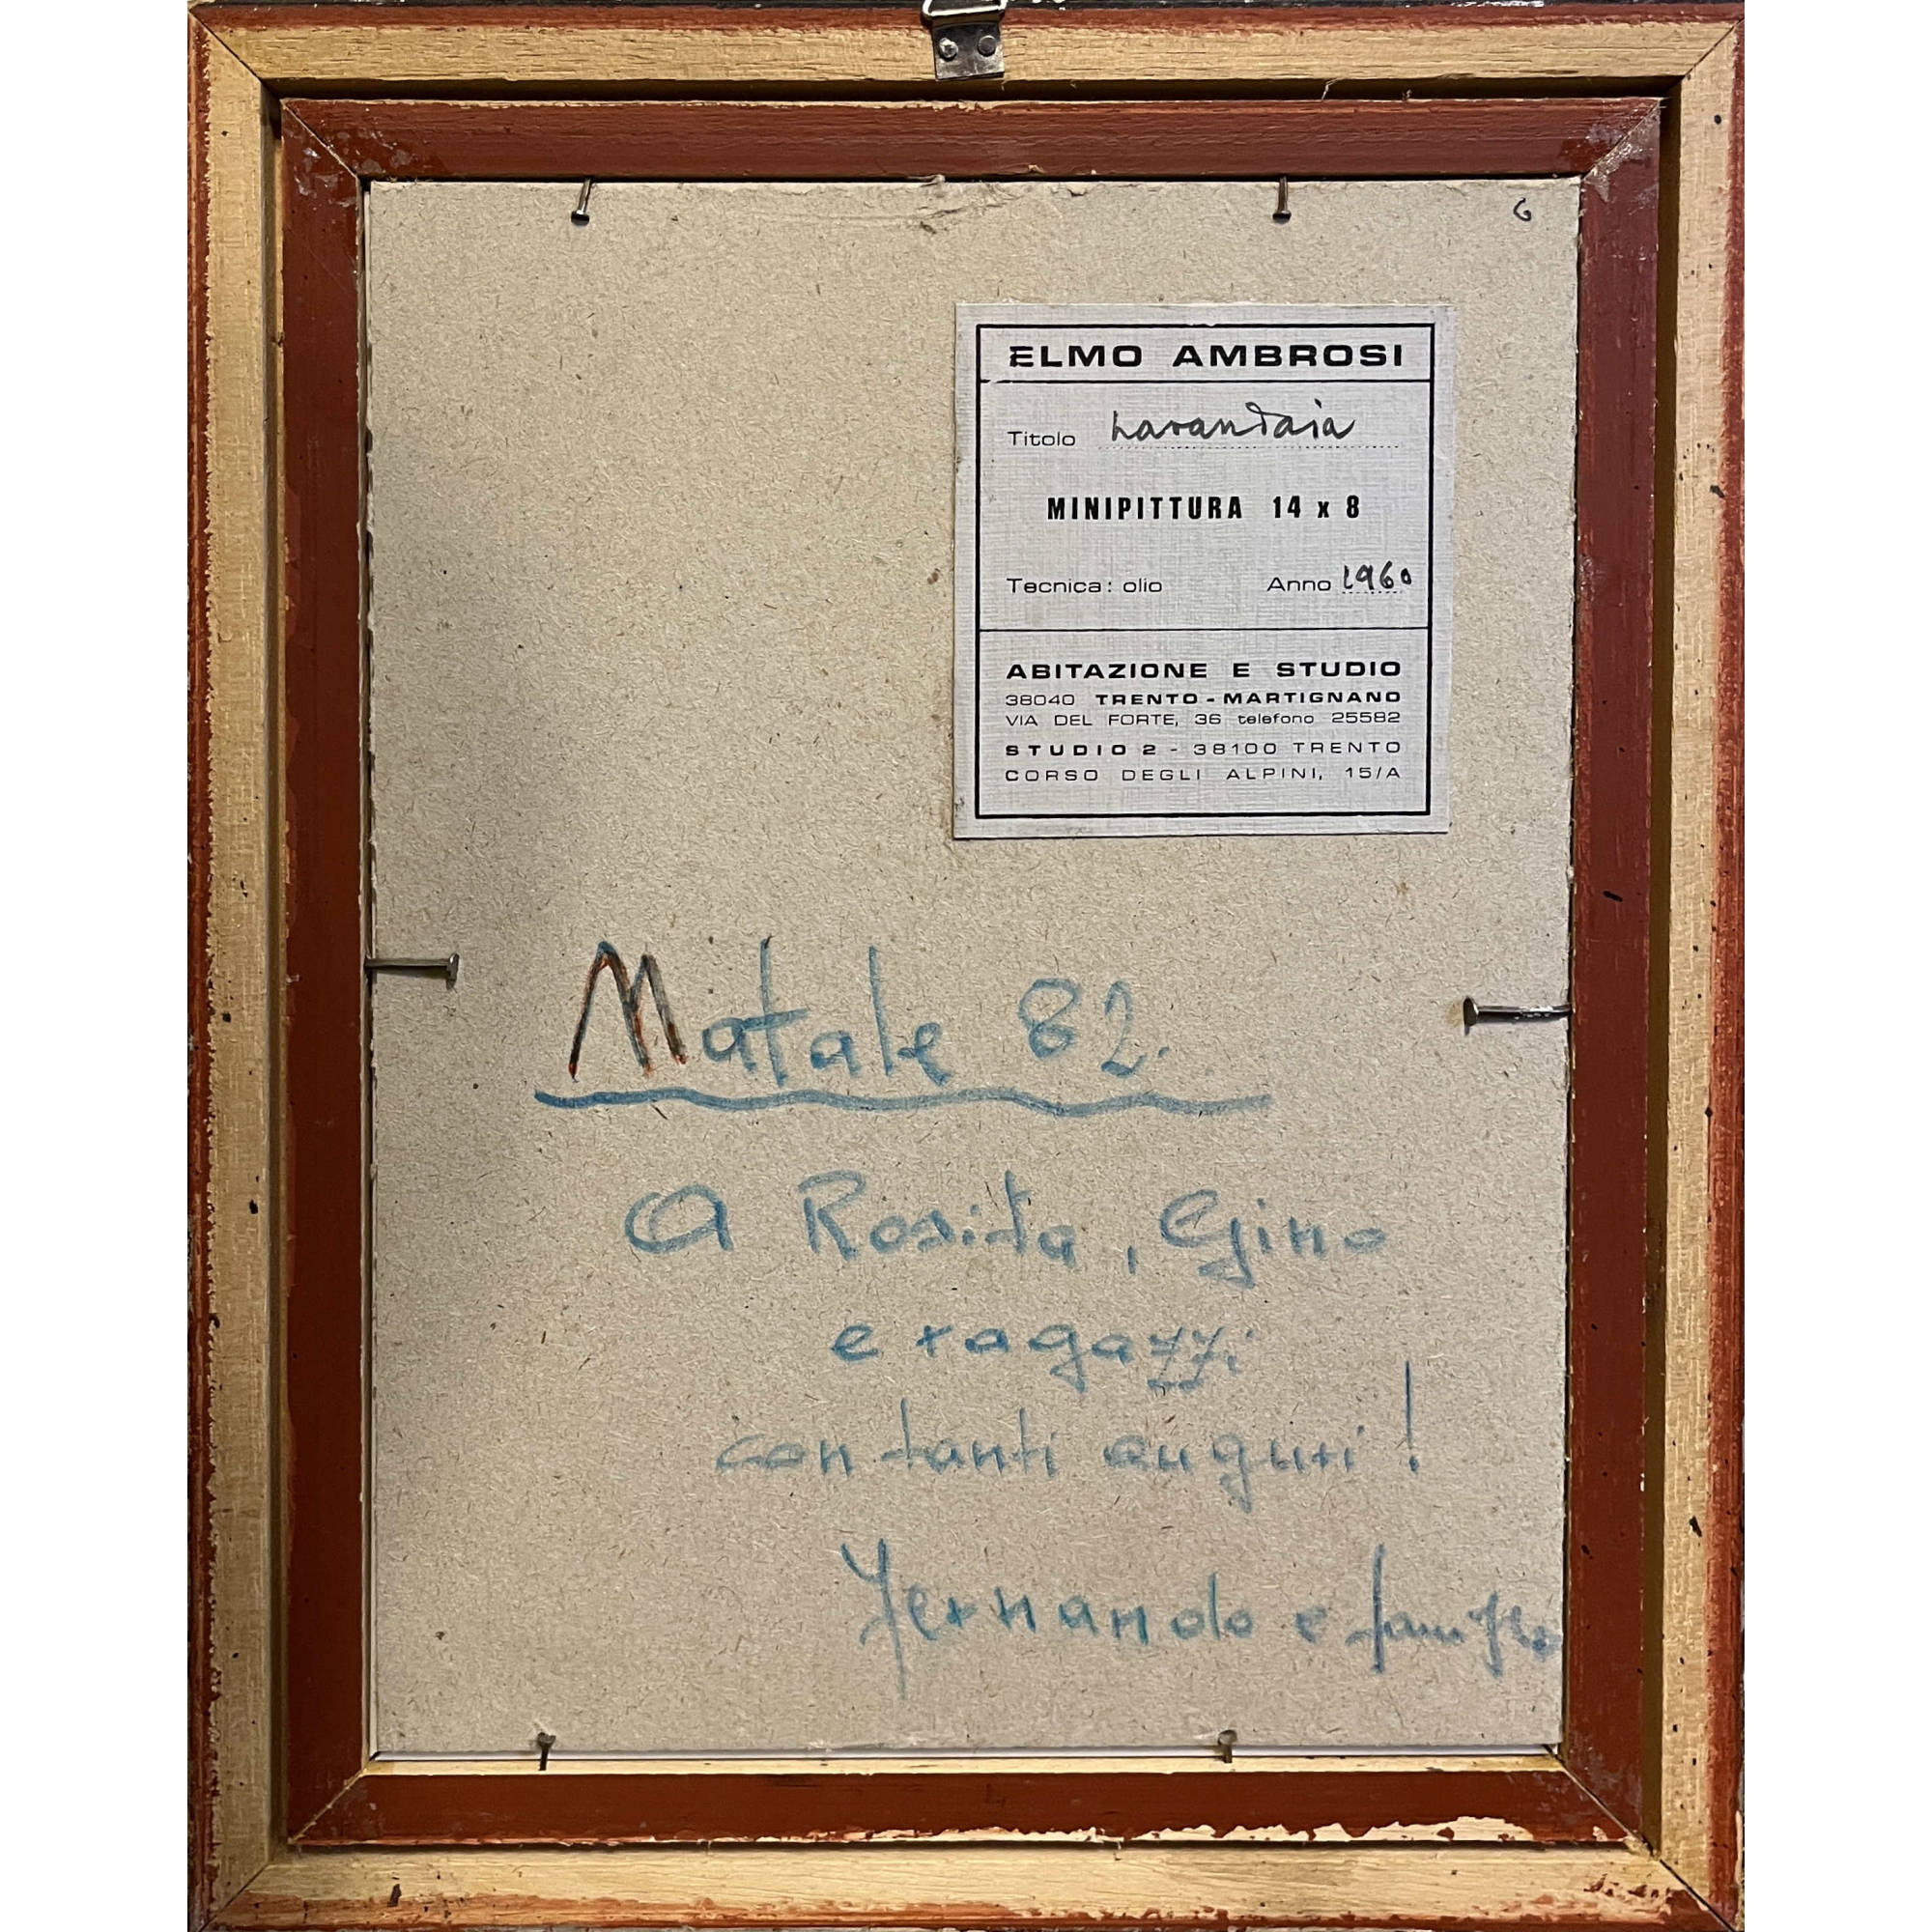 6
ELMO AMBROSI
Titolo Lavandaia
MINIPITTURA 14 x 8
Tecnica: olio Anno 1960
ABITAZIONE E STUDIO
38040 TRENTO - MARTIGNANO
VIA DEL FORTE, 36 telefono 25582
STUDIO 2 - 38100 TRENTO
CORSO DEGLI ALPINI, 15/A
Natale 82.
A Rosita, Gino
e ragazzi
con tanti auguri!
Fernando e famiglia